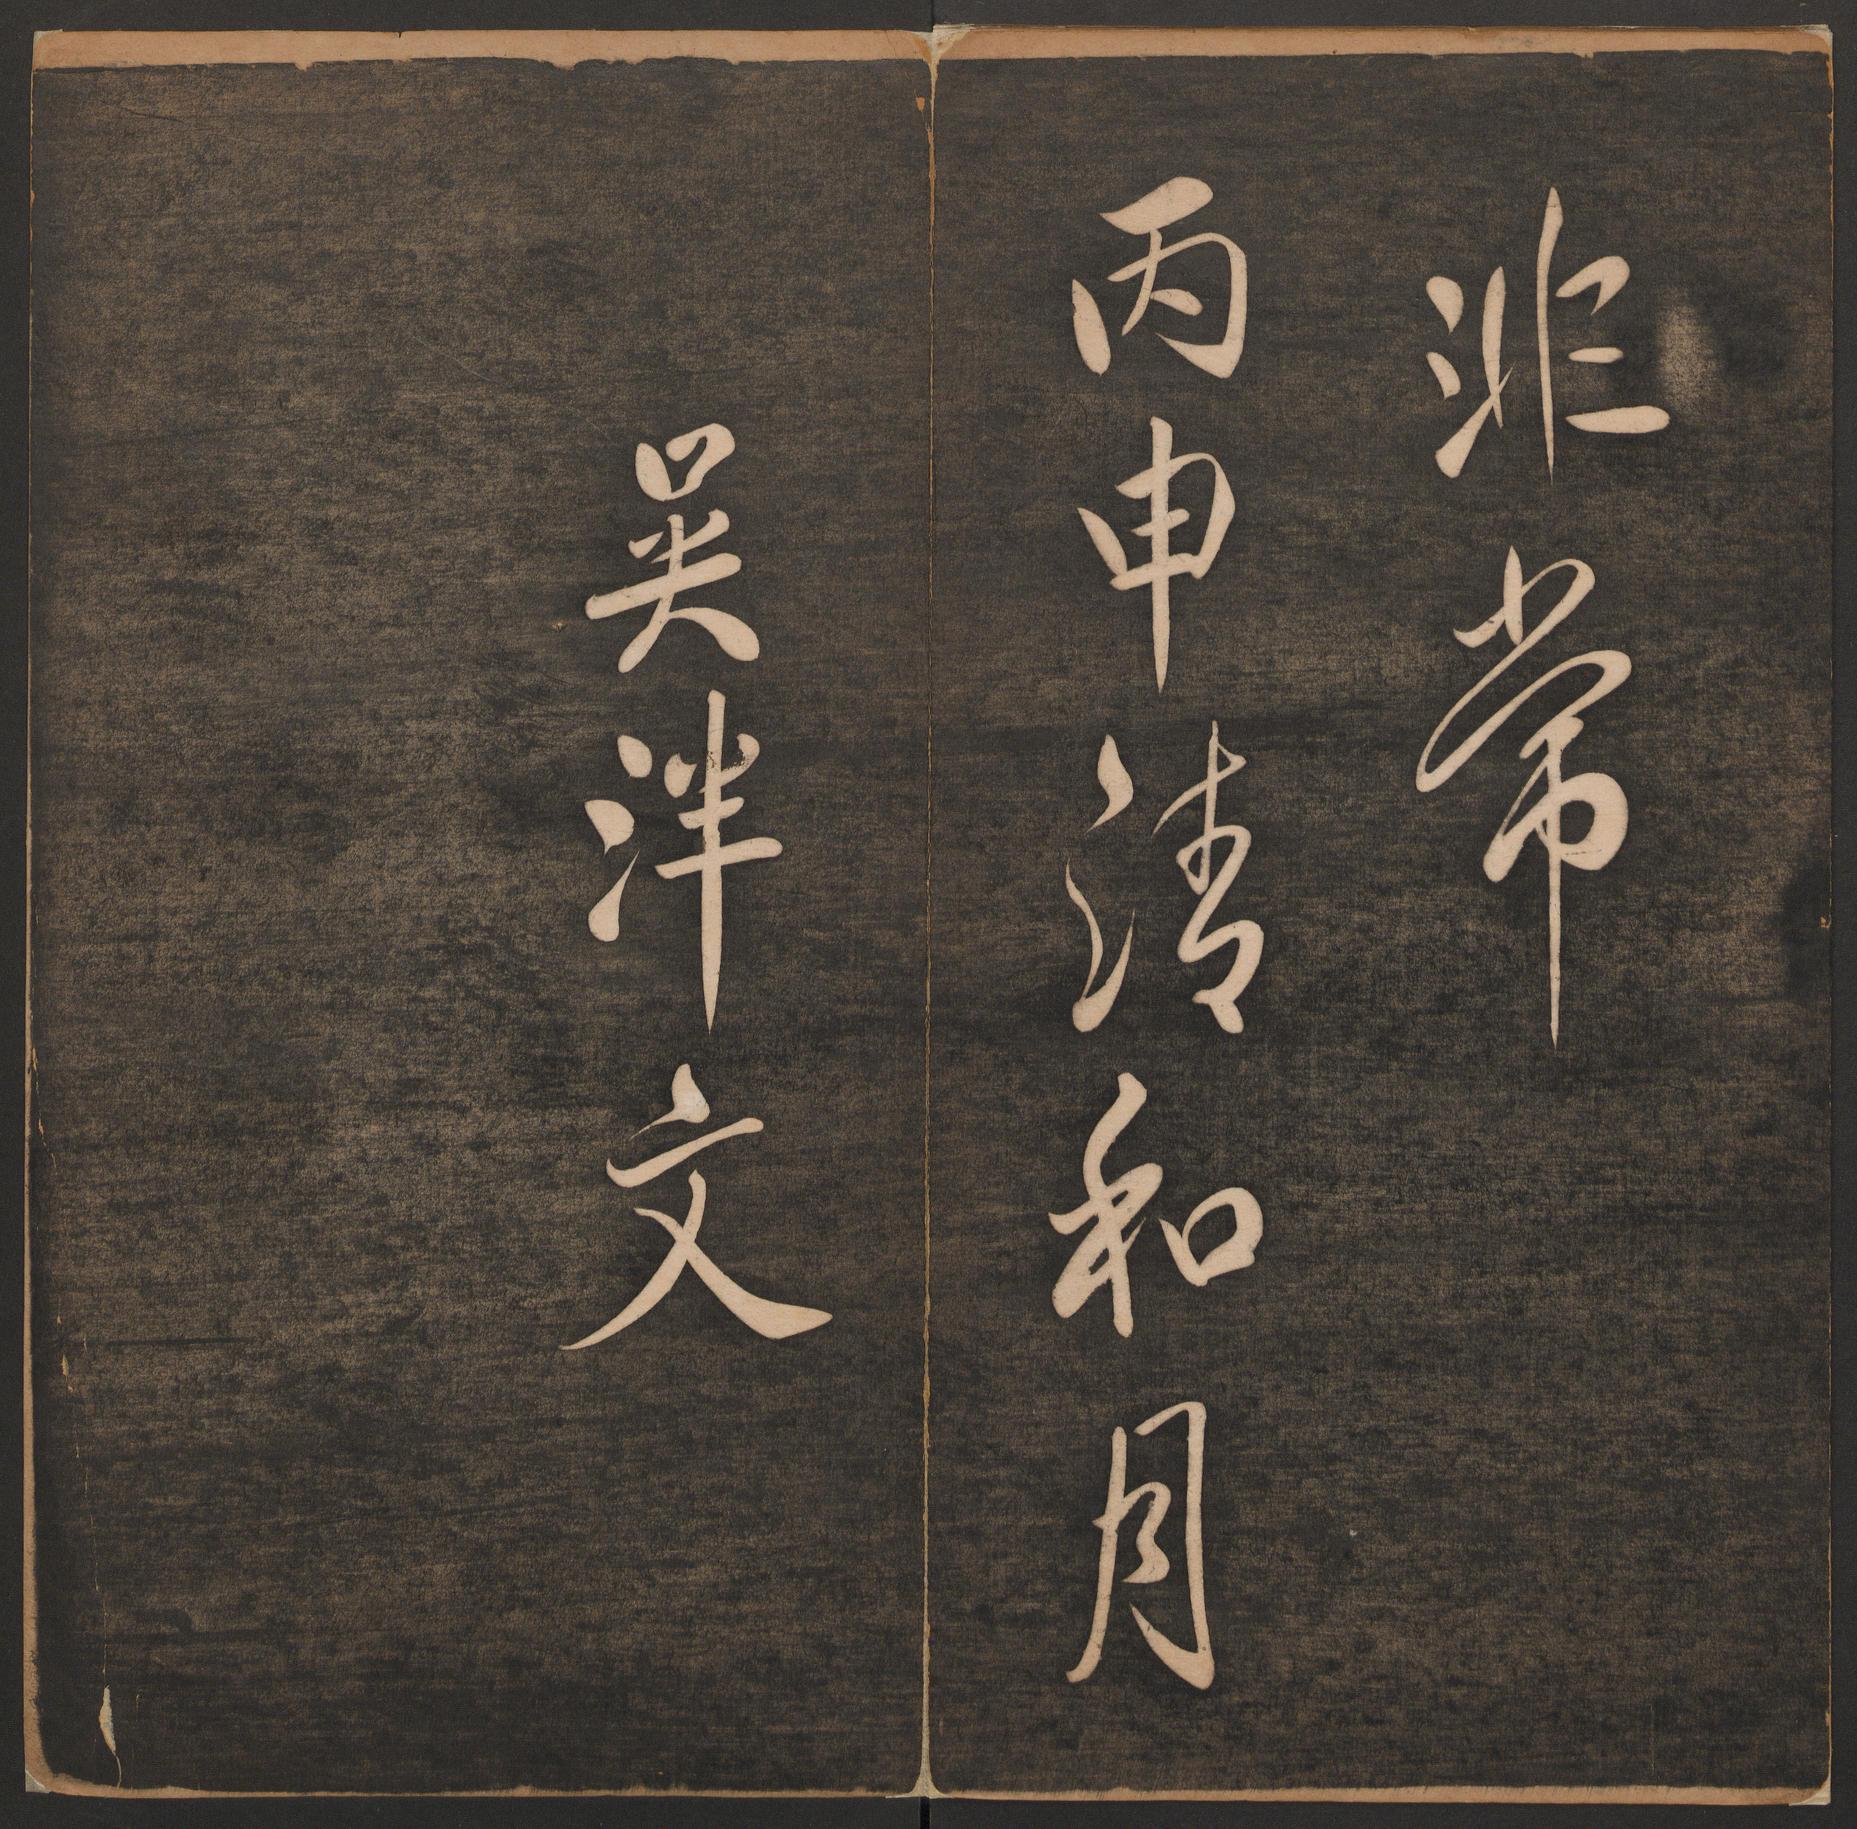 非常
丙申清和月
吴泮文